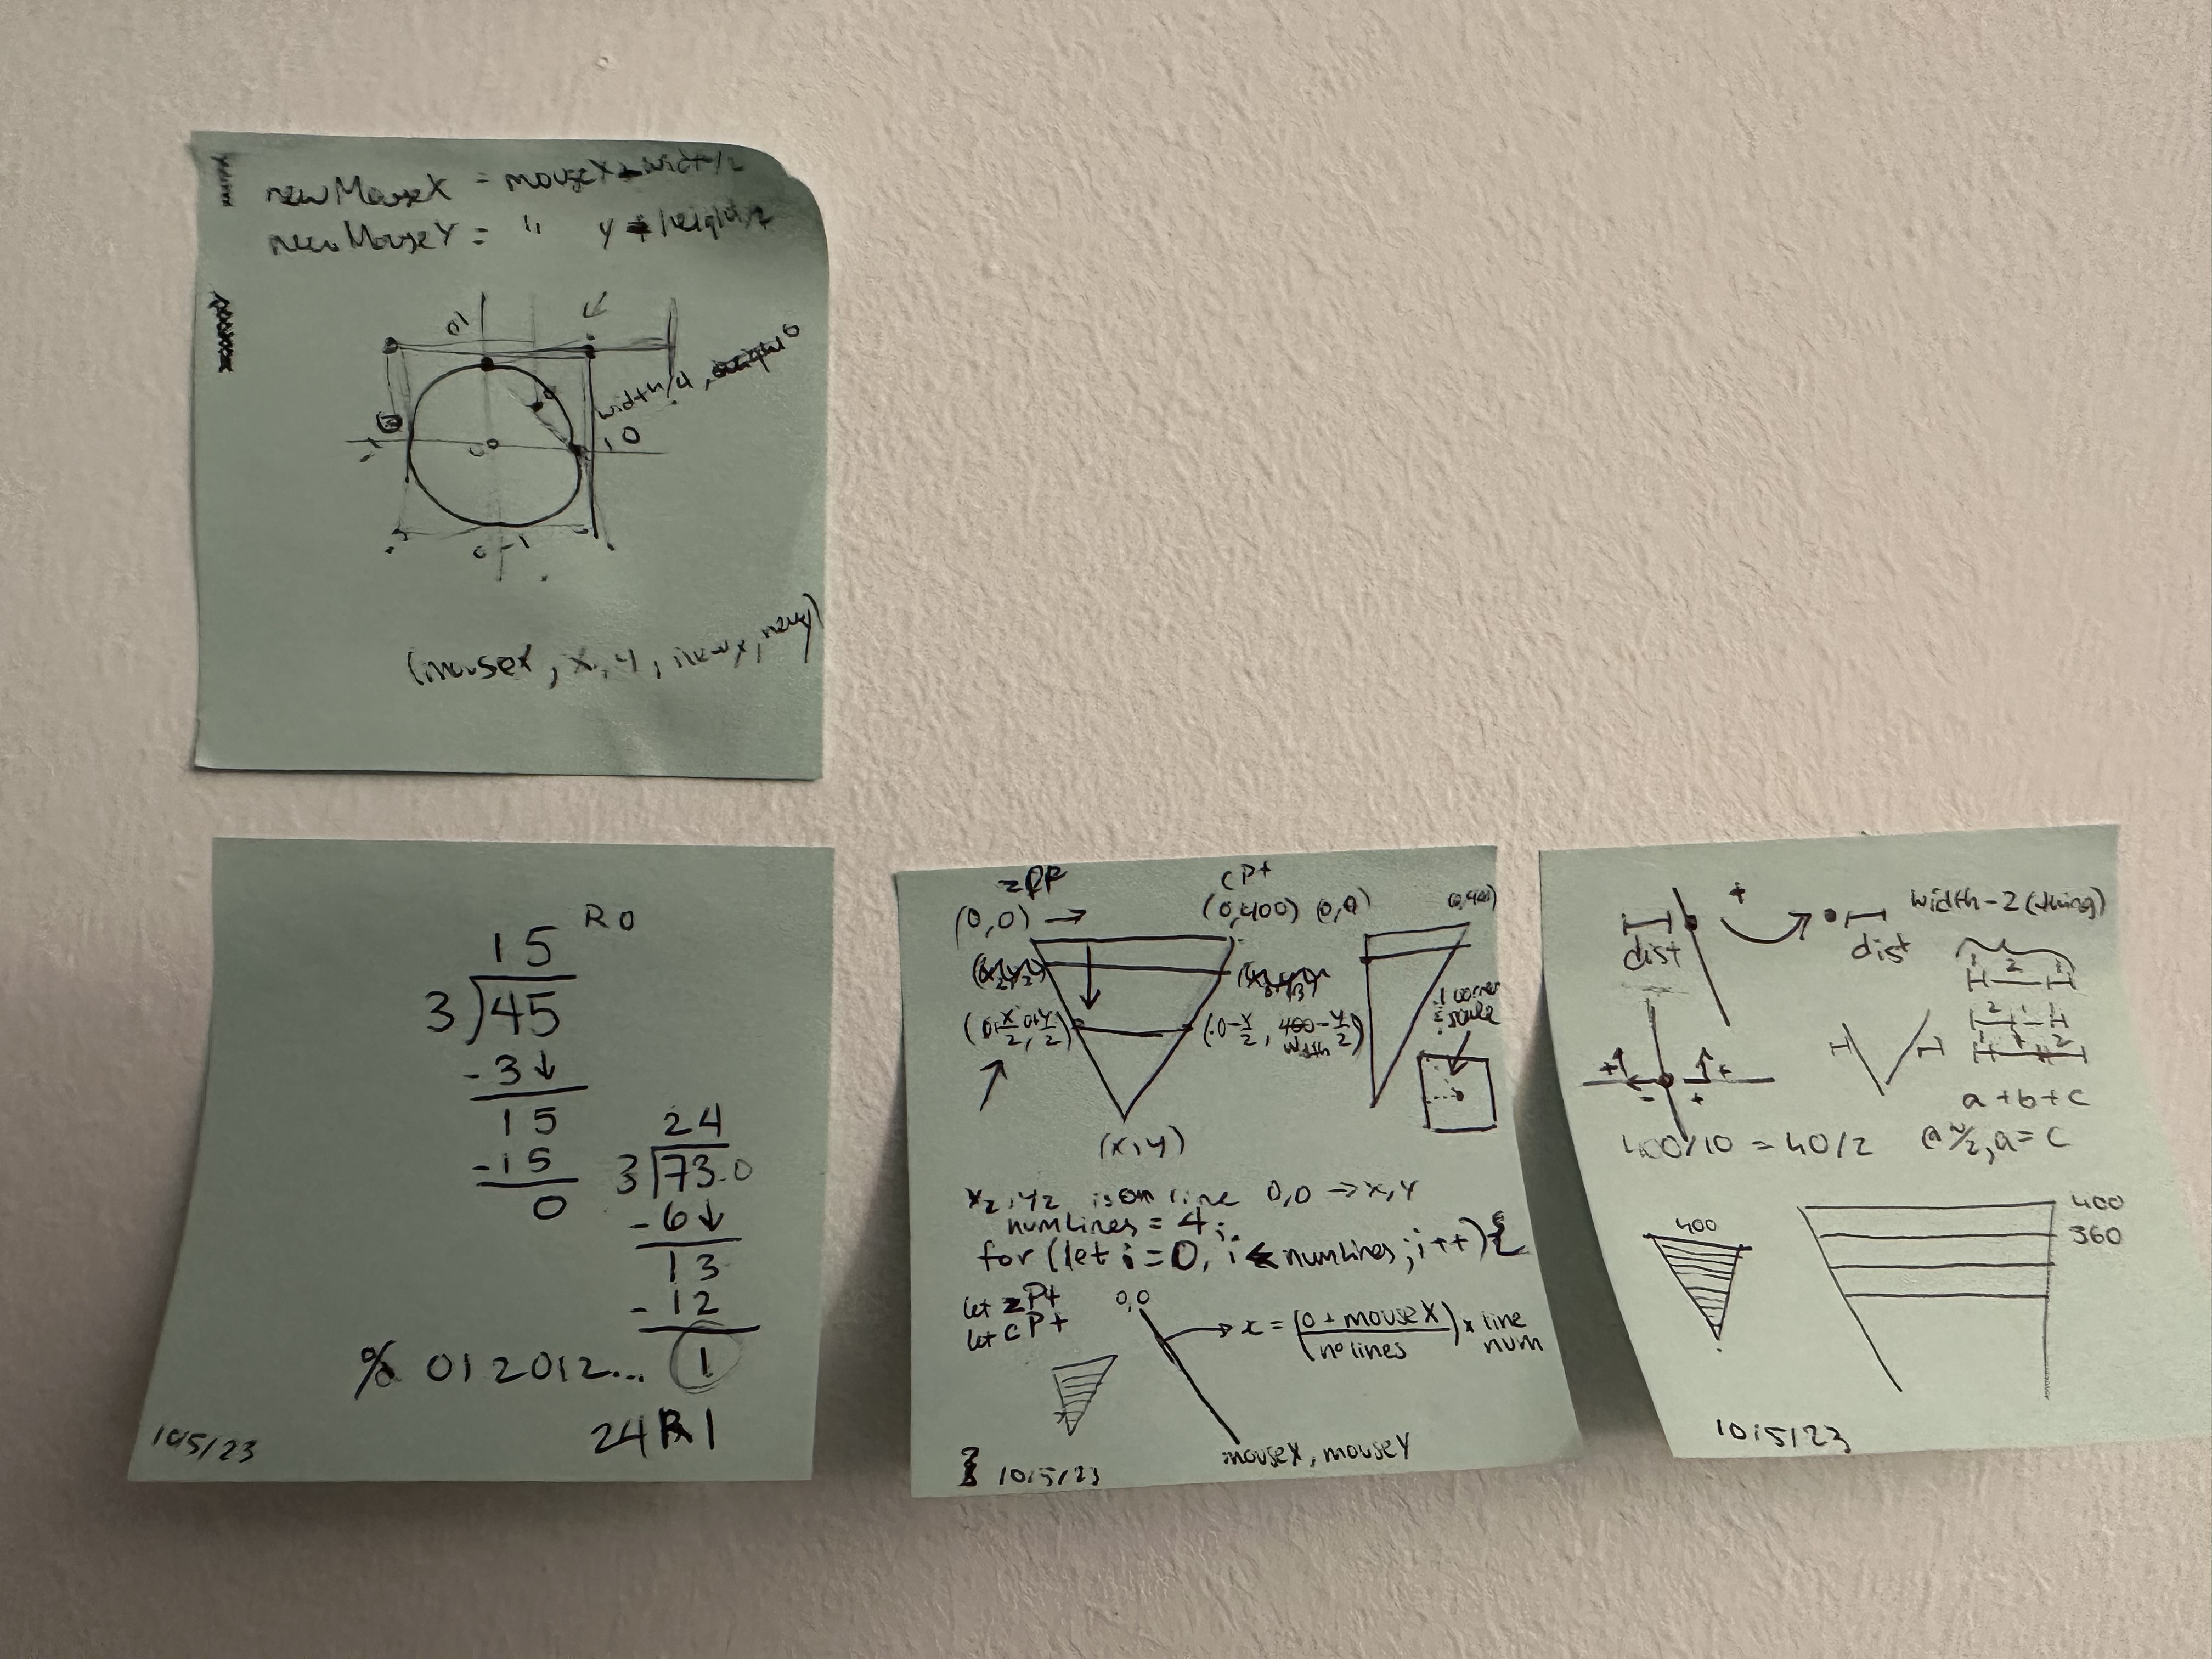 newMouseX = mouseX - width/2
newMouseY = " y + height/2
01
width/4, 0
-1
1 0
0 0
0 -1
(mouseX, x, y, newx, newy)
15 R0
3 45
-3
15
-15
0
24
3 73.0
-6
13
-12
% 012012... 1
24R1
10/5/23
zPt
cPt
(0,0) → (0,400) (0,0) (0,400)
(0+x/2, 0+y/2) (0-x/2, 400-y/2)
width
1 corner
(x,y)
x2, y2 is on line 0,0 → x,y
numLines = 4;
for (let i=0, i < numLines; i++) {
let zPt
let cPt
0,0
x = (0 + mouseX / no lines) × line num
mouseX, mouseY
10/5/23
+
width-2(thing)
dist
dist
1 2 1
2 1
+
+
-
+
a+b+c
400/10 = 40/2
a=c
400
400
360
10/5/23